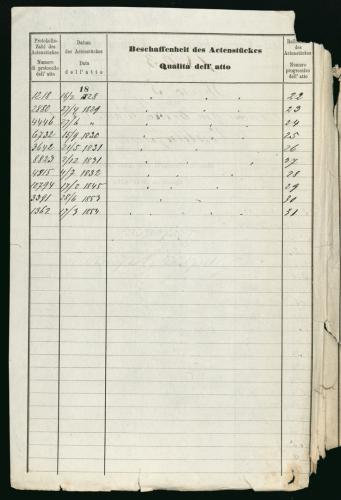 Protokolls-Zahl des Actenstückes
Numero di protocollo dell' atto
Datum des Actenstückes
Data dell' atto
Beschaffenheit des Actenstückes
Qualità dell' atto
des Actenstückes
Numero progressivo dell' atto
18
1218 16/2 828 " " " " 22
2880 27/4 1829 " " " " 23
4446 27/6 " " " " " 24
6732 15/9 1830 " " " " 25
3642 21/5 1831 " " " " 26
8823 2/12 1831 " " " " 27
4815 4/7 1832 " " " " 28
10794 17/2 1845 " " " " 29
3391 28/6 1853 " " " " 30
1362 17/3 1854 " " " " 31